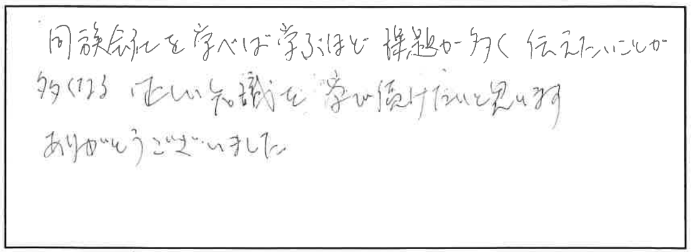 同族会社を学べば学ぶほど 課題が多く 伝えたいことが
多くなる 正しい知識を 学び続けたいと思います
ありがとうございました